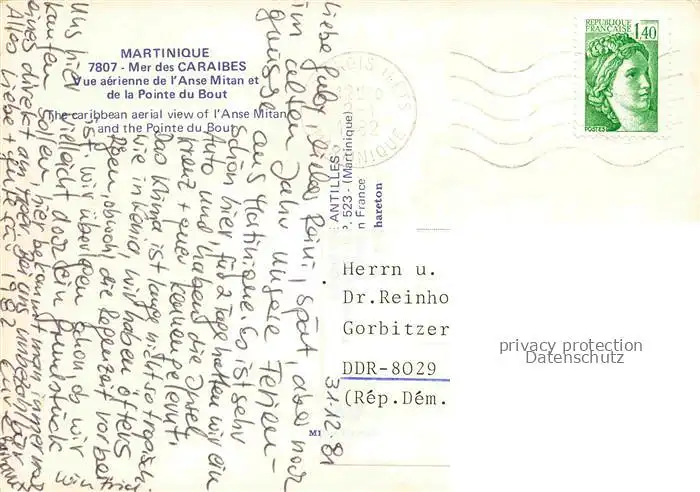 MARTINIQUE
7807 - Mer des CARAIBES
Vue aérienne de l'Anse Mitan et
de la Pointe du Bout
The caribbean aerial view of l'Anse Mitan
and the Pointe du Bout
31.12.81
Liebe Gaby, lieber Reini, spät, aber noch
im alten Jahr unsere Ferien-
grüsse aus Martinique. Es ist sehr
schön hier, für 2 Tage hatten wir ein
Auto und haben die Insel
kreuz + quer kennengelernt.
Das Klima ist lange nicht so tropisch
wie in Kenia, wir haben öfters
Regen, obwohl die Regenzeit vorbei
ist. Wir überlegen schon, ob wir
uns hier vielleicht doch ein Grundstück
kaufen sollen, hier bekommt man immer noch
eines direkt am Meer, bei uns unbezahlbar.
Alles Liebe + Gute für 1982
ANTILLES
P. 523 - (Martinique)
n France
hareton
RÉPUBLIQUE
FRANÇAISE
1,40
POSTES
Herrn u.
Dr.Reinho
Gorbitzer
DDR-8029
(Rép.Dém.
privacy protection
Datenschutz